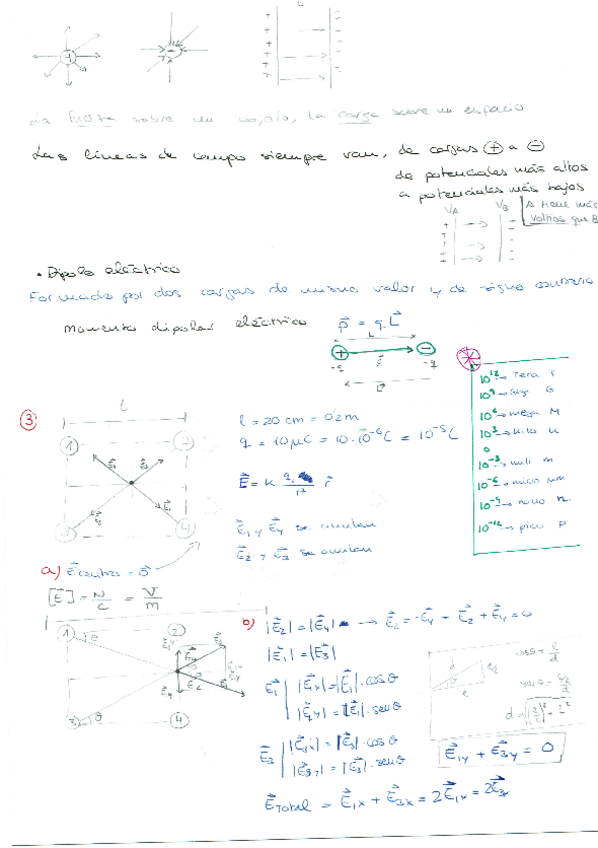 La fuerza sobre un cuerpo, la carga sobre un espacio
Las líneas de campo siempre van, de cargas ⊕ a ⊖
de potenciales más altos
a potenciales más bajos
VA VB
A tiene más
voltios que B
• Dipolo eléctrico
Formado por dos cargas de mismo valor y de signo contrario
momento dipolar eléctrico
p = q·L
10¹² → Tera T
10⁹ → Giga G
10⁶ → mega M
10³ → kilo K
0
10⁻³ → mili m
10⁻⁶ → micro
10⁻⁹ → nano n
10⁻¹² → pico p
③
l = 20 cm = 0'2m
q = 10 μC = 10·10⁻⁶ C = 10⁻⁵ C
E = K q/r² r
E₁ y E₄ se anulan
E₂ y E₃ se anulan
a) E centro = 0
[E] = N/C = V/m
b) |E₂| = |E₄| → E₂ = -E₄ → E₂ + E₄ = 0
|E₁| = |E₃|
E₁ |E₁x| = |E₁|·cos θ
|E₁y| = |E₁|·sen θ
E₃ |E₃x| = |E₃|·cos θ
|E₃y| = |E₃|·sen θ
cos θ = l/d
d = √((l/2)² + l²)
E₁y + E₃y = 0
E Total = E₁x + E₃x = 2E₁x = 2E₃x